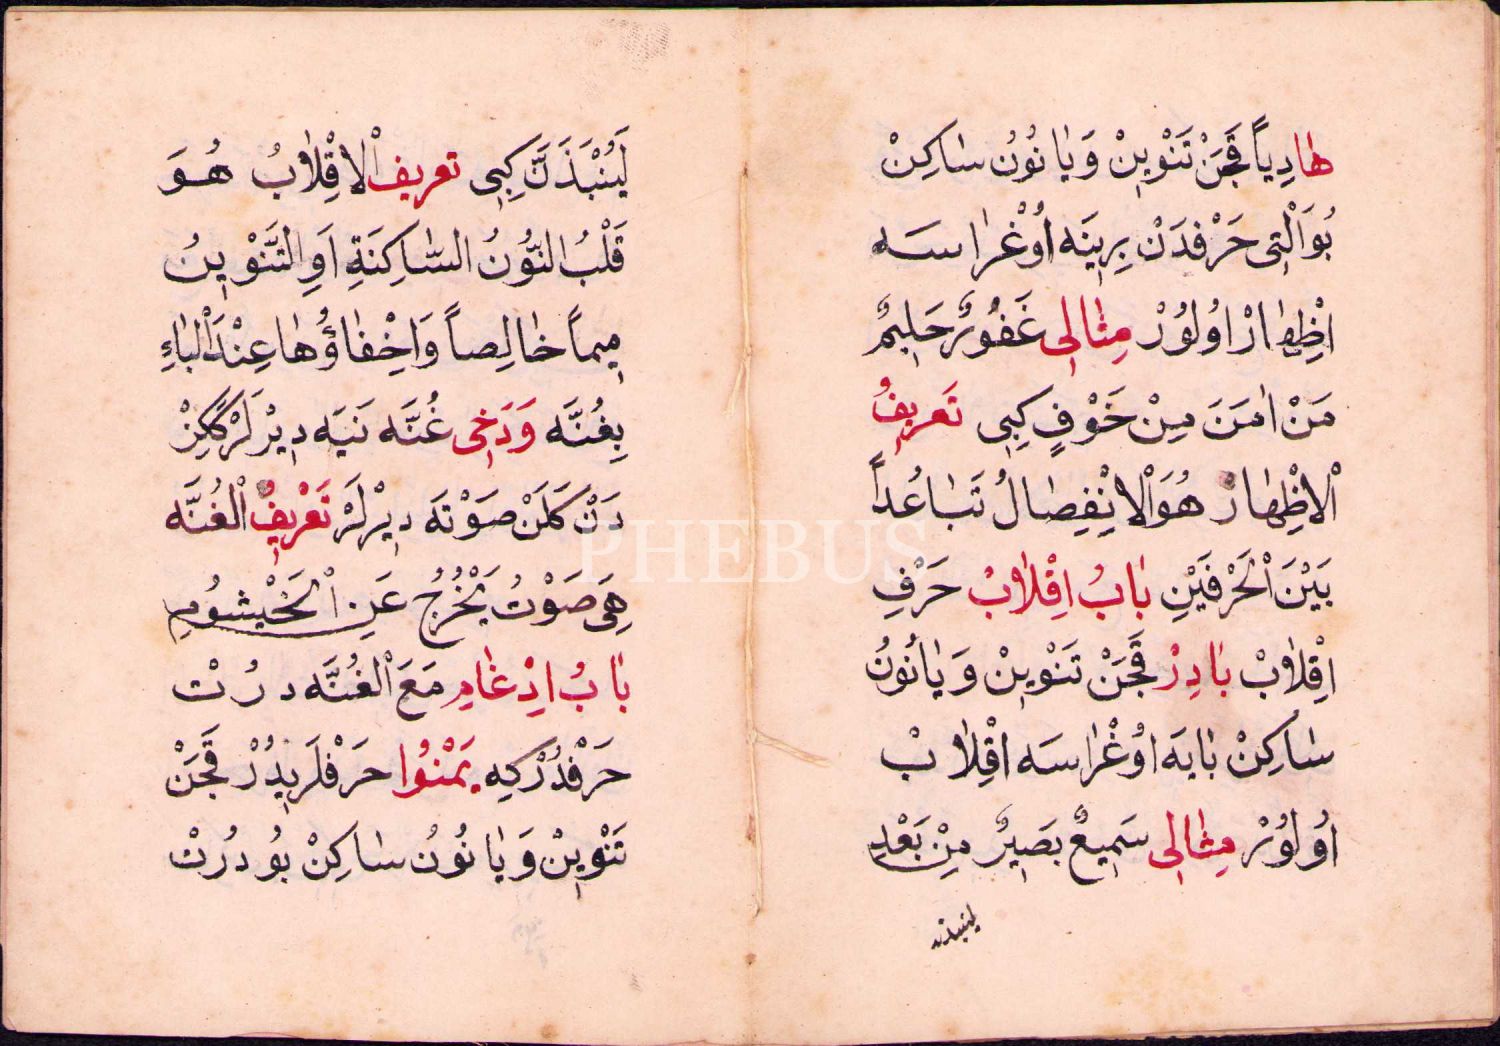 هَادِياً قَچَنْ تَنْوِينْ وَيَا نُونُ سَاكِنْ
بُو اَلْتِى حَرْفدَنْ بِرِينَه اُوْغْرَاسَه
اِظِهَارْ اُولُورْ مِثَالِى غَفُورٌ حَلِيمٌ
مَنْ اٰمَنَ مِنْ خَوْفٍ كِبِى تَعرِيفُ
الْاِظِهَارْ هُوَ الْاِنْفِصَالُ تَبَاعُداً
بَيْنَ الْحَرْفَيْنِ بَابُ اِقْلَابْ حَرْفِ
اِقْلَابْ بَادِرْ قَچَنْ تَنْوِينْ وَيَا نُونُ
سَاكِنْ بَايَه اوُغْرَاسَه اقْلِابْ
اُولُورْ مِثَالِى سَمِيعٌ بَصِيرٌ مِنْ بَعْدِ
لينبذن
لَيُنْبَذَنَّ كِبِى تعريف الْاقْلَابُ هُوَ
قَلْبُ النّوُنُ السَّاكِنَةِ اَوِ التَّنْوِينُ
مِيماً خَالِصاً وَاِخْفَاؤُهَا عِنْدَ الْبَاءِ
بِغُنَّه وَدَخِى غُنَّه نَيَه دِيْرلَرْ گَڭِزْ
دَنْ كَلَنْ صَوْتَه دِيْرْلَرْ تَعْرِيفُ الْغُنَّه
هِىَ صَوْتُ يَخْرُجُ عَنِ الْخَيْشوُمِ
بَابُ اِدْغَامِ مَعَ الْغُنَّه دُرْتْ
حَرْفدُرْكِه يَمْنُوا حَرْفلَرِيدُرْ قَچَنْ
تَنْوِينْ وَيَا نُونُ سَاكِنْ بُو دُرْتْ
PHEBUS